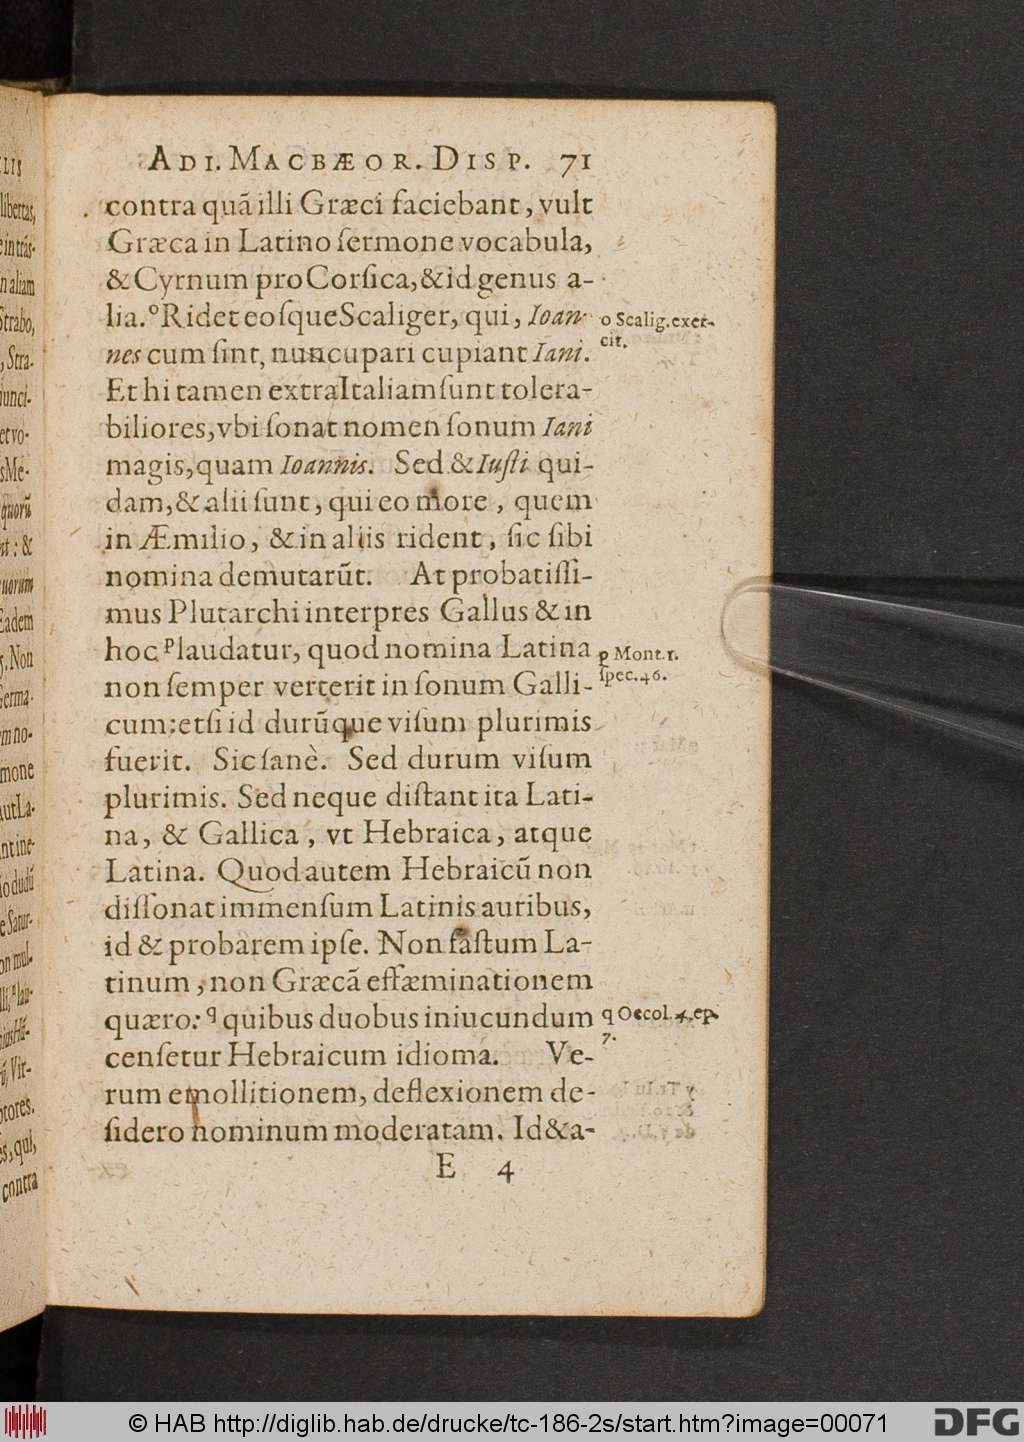 ADI. MACBÆOR. DISP. 71
contra quã illi Græci faciebant, vult
Græca in Latino ſermone vocabula,
& Cyrnum pro Corſica, & id genus a-
lia. º Ridet eoſque Scaliger, qui, Ioan-
nes cum ſint, nuncupari cupiant Iani.
Et hi tamen extra Italiam ſunt tolera-
biliores, vbi ſonat nomen ſonum Iani
magis, quam Ioannis. Sed & Iuſti qui-
dam, & alii ſunt, qui eo more, quem
in Æmilio, & in aliis rident, ſic ſibi
nomina demutarũt. At probatiſſi-
mus Plutarchi interpres Gallus & in
hoc ᵖ laudatur, quod nomina Latina
non ſemper verterit in ſonum Galli-
cum: etſi id durũque viſum plurimis
fuerit. Sic ſanè. Sed durum viſum
plurimis. Sed neque diſtant ita Lati-
na, & Gallica, vt Hebraica, atque
Latina. Quod autem Hebraicũ non
diſſonat immenſum Latinis auribus,
id & probarem ipſe. Non faſtum La-
tinum, non Græcã effæminationem
quæro: q quibus duobus iniucundum
cenſetur Hebraicum idioma. Ve-
rum emollitionem, deflexionem de-
ſidero nominum moderatam. Id & a-
E 4
o Scalig. exer-
cit.
p Mont. 1.
ſpec. 46.
q Oecol. 4. ep.
7.
libertas,
n aliam
Strabo,
, Stra-
iunci-
et vo-
s Me-
quorũ
nt: &
quorum
Eadem
. Non
Germa-
m no-
mone
aut La-
on mul-
, Vir-
ptores.
es, qui,
contra
© HAB http://diglib.hab.de/drucke/tc-186-2s/start.htm?image=00071
DFG